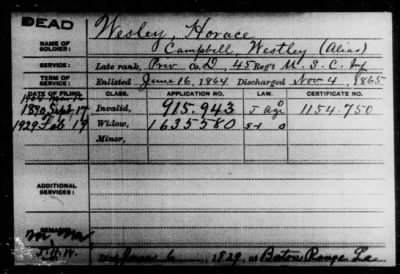 DEAD
Wesley, Horace
NAME OF SOLDIER:
Campbell, Westley (Alias)
SERVICE:
Late rank, Priv Co. D, 45 Reg't U. S. C. Inf
TERM OF SERVICE:
Enlisted June 16, 1864. Discharged Nov 4, 1865
DATE OF FILING. CLASS. APPLICATION NO. LAW. CERTIFICATE NO.
1890 Sept. 17 Invalid, 915.943 1154.750
1929 Feb 19 Widow, 1635580
Minor,
ADDITIONAL SERVICES:
REMARKS:
Died 6, 1929, at Baton Rouge La